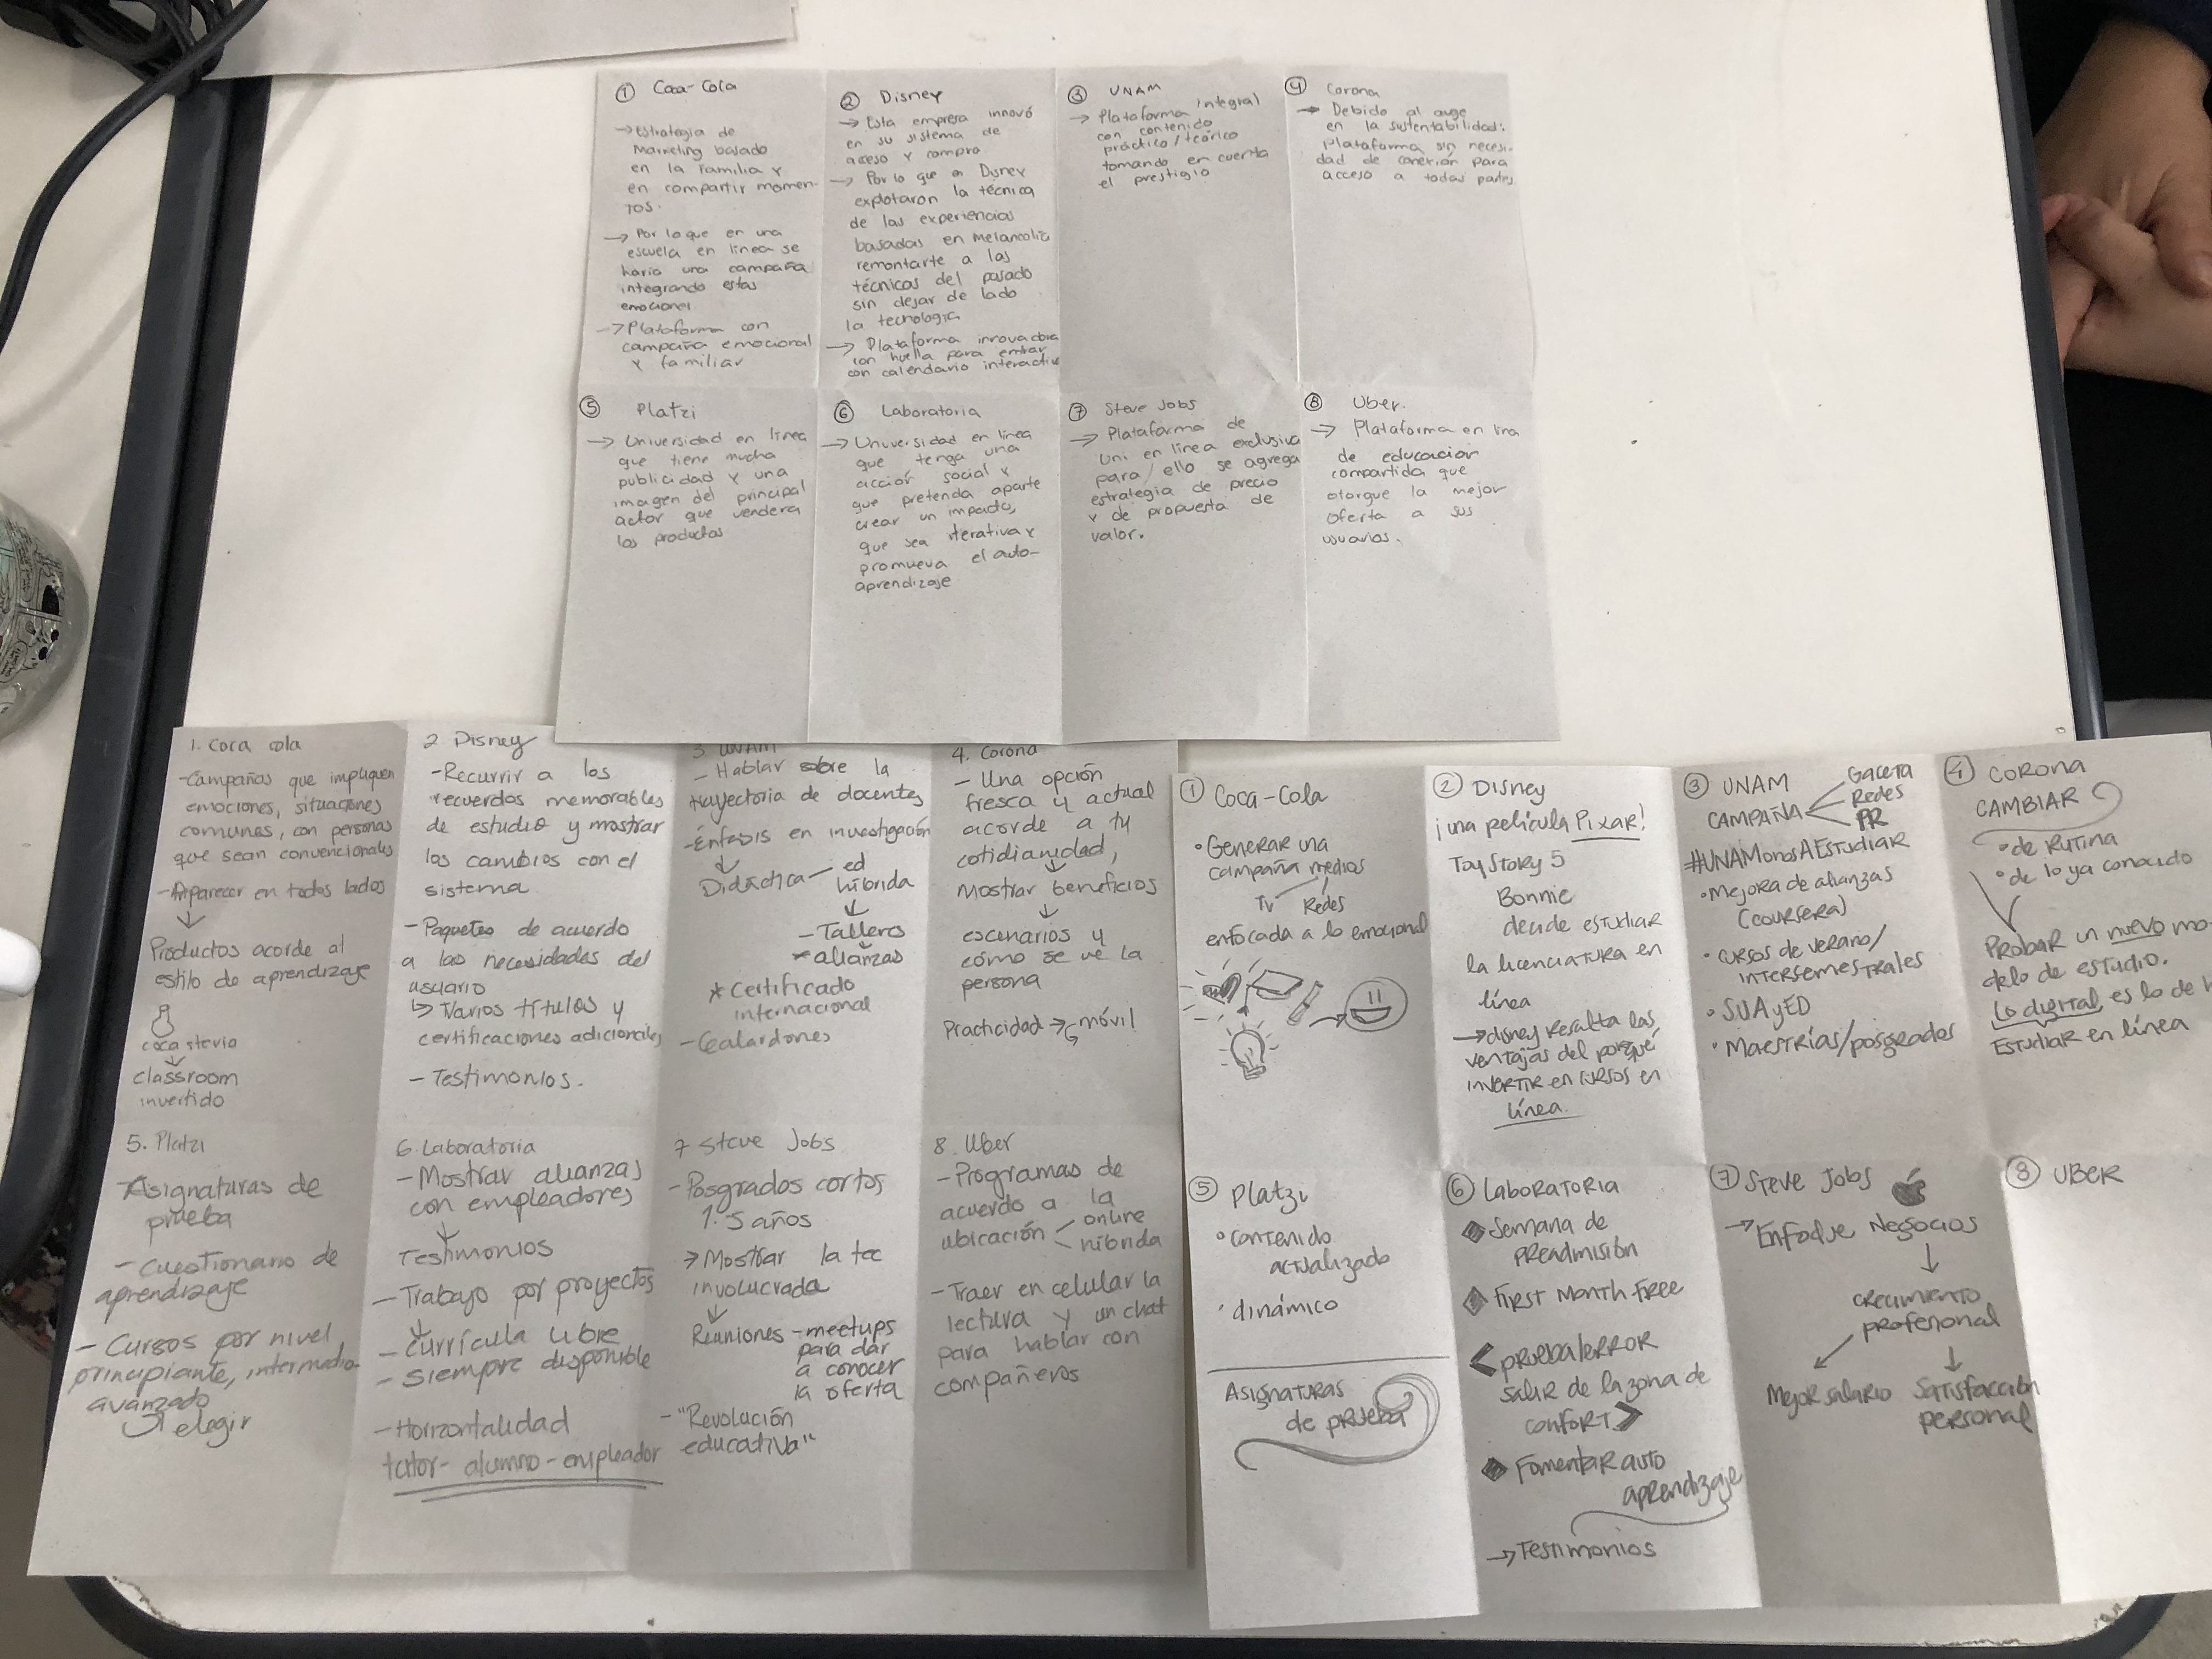 ① Coca-Cola
→ Estrategia de
Marketing basado
en la Familia y
en compartir momen-
tos.
→ Por lo que en una
escuela en línea se
haría una campaña
integrando estas
emociones
→ Plataforma con
campaña emocional
y familiar
② Disney
→ Esta empresa innovó
en su sistema de
acceso y compra
→ Por lo que en Disney
explotaron la técnica
de las experiencias
basadas en melancolía
remontarte a las
técnicas del pasado
sin dejar de lado
la tecnología
→ Plataforma innovadora
con huella para entrar
con calendario interactivo
③ UNAM
→ Plataforma integral
con contenido
práctico/teórico
tomando en cuenta
el prestigio
④ Corona
→ Debido al auge
en la sustentabilidad:
Plataforma sin necesi-
dad de conexión para
acceso a todas partes
⑤ Platzi
→ Universidad en línea
que tiene mucha
publicidad y una
imagen del principal
actor que vendera
los productos
⑥ Laboratoria
→ Universidad en línea
que tenga una
acción social y
que pretenda aparte
crear un impacto,
que sea iterativa y
promueva el auto-
aprendizaje
⑦ Steve Jobs
→ Plataforma de
Uni en línea exclusiva
para/ ello se agrega
estrategia de precio
y de propuesta de
valor.
⑧ Uber.
→ Plataforma en lina
de educación
compartida que
otorgue la mejor
oferta a sus
usuarios.
1. Coca cola
-Campañas que impliquen
emociones, situaciones
comunes, con personas
que sean convencionales
-Aparecer en todos lados
↓
Productos acorde al
estilo de aprendizaje
coca stevia
↓
classroom
invertido
2 Disney
-Recurrir a los
recuerdos memorables
de estudio y mostrar
los cambios con el
sistema
-Paquetes de acuerdo
a las necesidades del
usuario
↳ Varios títulos y
certificaciones adicionales
- Testimonios.
3. UNAM
- Hablar sobre la
trayectoria de docentes
-Énfasis en investigación
↓
Didáctica — ed
híbrida
↓
- Talleres
- alianzas
* Certificado
internacional
- Galardones
4. Corona
- Una opción
fresca y actual
acorde a tu
cotidianidad,
↓
Mostrar beneficios
↓
escenarios y
cómo se ve la
persona
Practicidad → móvil
5. Platzi
-Asignaturas de
prueba
- Cuestionario de
aprendizaje
- Cursos por nivel,
principiante, intermedio
avanzado
elegir
6. Laboratoria
- Mostrar alianzas
con empleadores
↓
Testimonios
- Trabajo por proyectos
↓
- Currícula libre
- Siempre disponible
- Horizontalidad
tutor- alumno - empleador
7 Steve Jobs
-Posgrados cortos
1.5 años
→ Mostrar la tec
involucrada
↓
Reuniones - meetups
para dar
a conocer
la oferta
- "Revolución
educativa"
8. Uber
-Programas de
acuerdo a la
ubicación < online
híbrida
-Traer en celular la
lectura y un chat
para hablar con
compañeros
① Coca-Cola
• Generar una
campaña medios
TV Redes
enfocada a lo emocional
② Disney
¡una película Pixar!
Toy Story 5
Bonnie
decide estudiar
la licenciatura en
línea
→ disney resalta las
ventajas del porqué
invertir en cursos en
línea.
③ UNAM
CAMPAÑA
Gaceta
Redes
PR
#UNAMonosAEstudiar
• Mejora de alianzas
(Coursera)
• cursos de verano/
intersemestrales
• SUAyED
• Maestrías/posgrados
④ CORONA
CAMBIAR
• de rutina
• de lo ya conocido
Probar un nuevo mo-
delo de estudio.
Lo digital, es lo de
Estudiar en línea
⑤ Platzi
• contenido
actualizado
• dinámico
Asignaturas
de prueba
⑥ Laboratoria
◆ Semana de
preadmisión
◆ First Month Free
< prueba/error
salir de la zona de
confort >
◆ Fomentar auto
aprendizaje
→ Testimonios
⑦ Steve Jobs
→ Enfoque Negocios
↓
crecimiento
profesional
Mejor salario Satisfacción
personal
⑧ UBER